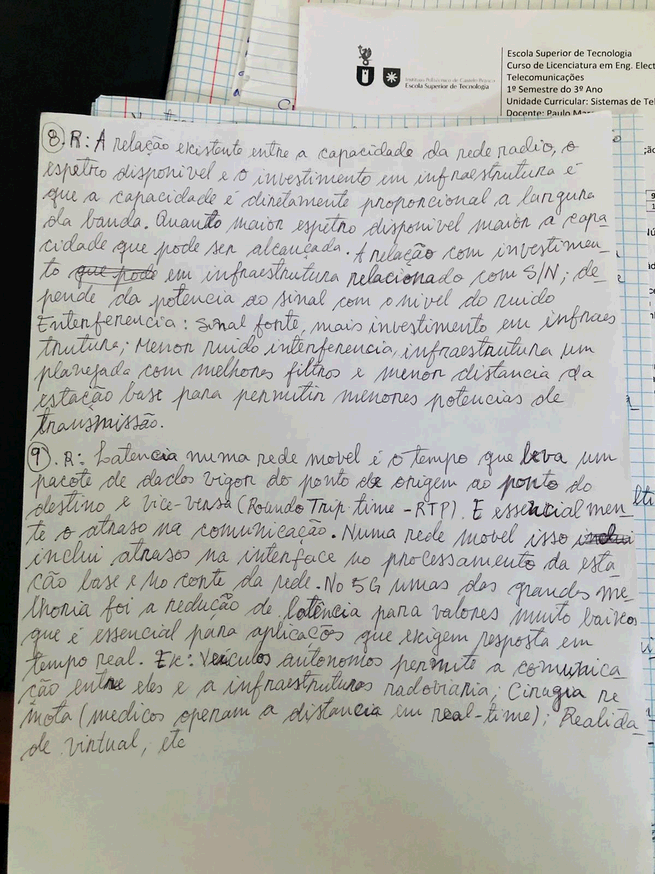 Instituto Politécnico de Castelo Branco
Escola Superior de Tecnologia
Escola Superior de Tecnologia
Curso de Licenciatura em Eng. Elect
Telecomunicações
1º Semestre do 3º Ano
Unidade Curricular: Sistemas de Tel
Docente: Paulo Mar
8. R: A relação existente entre a capacidade da rede radio, o
espetro disponivel e o investimento em infraestrutura é
que a capacidade é diretamente proporcional a largura
da banda. Quanto maior espetro disponivel maior a capa-
cidade que pode ser alcançada. A relação com investimen-
to que pode em infraestrutura relacionado com S/N; de-
pende da potencia do sinal com o nivel do ruido
Enterferencia: Sinal forte, mais investimento em infraes
trutura; Menor ruido interferencia, infraestrutura um
planejada com melhores filtros e menor distancia da
estação base para permitir menores potencias de
transmissão.
9. R: Latencia numa rede movel é o tempo que leva um
pacote de dados vigor do ponto de origem ao ponto do
destino e vice-versa (Roundo Trip time - RTP). E essencialmen-
te o atraso na comunicação. Numa rede movel isso inclui
inclui atrasos na interface no processamento da esta
ção base e no conte da rede. No 5G umas das grandes me-
lhoria foi a redução de latência para valores muito baixos
que é essencial para aplicações que exigem resposta em
tempo real. Ex: Veiculos autonomos permite a comunica
ção entre eles e a infraestruturas radoviaria; Ciragia re
mota (medicos operam a distancia em real-time); Realida-
de virtual, etc